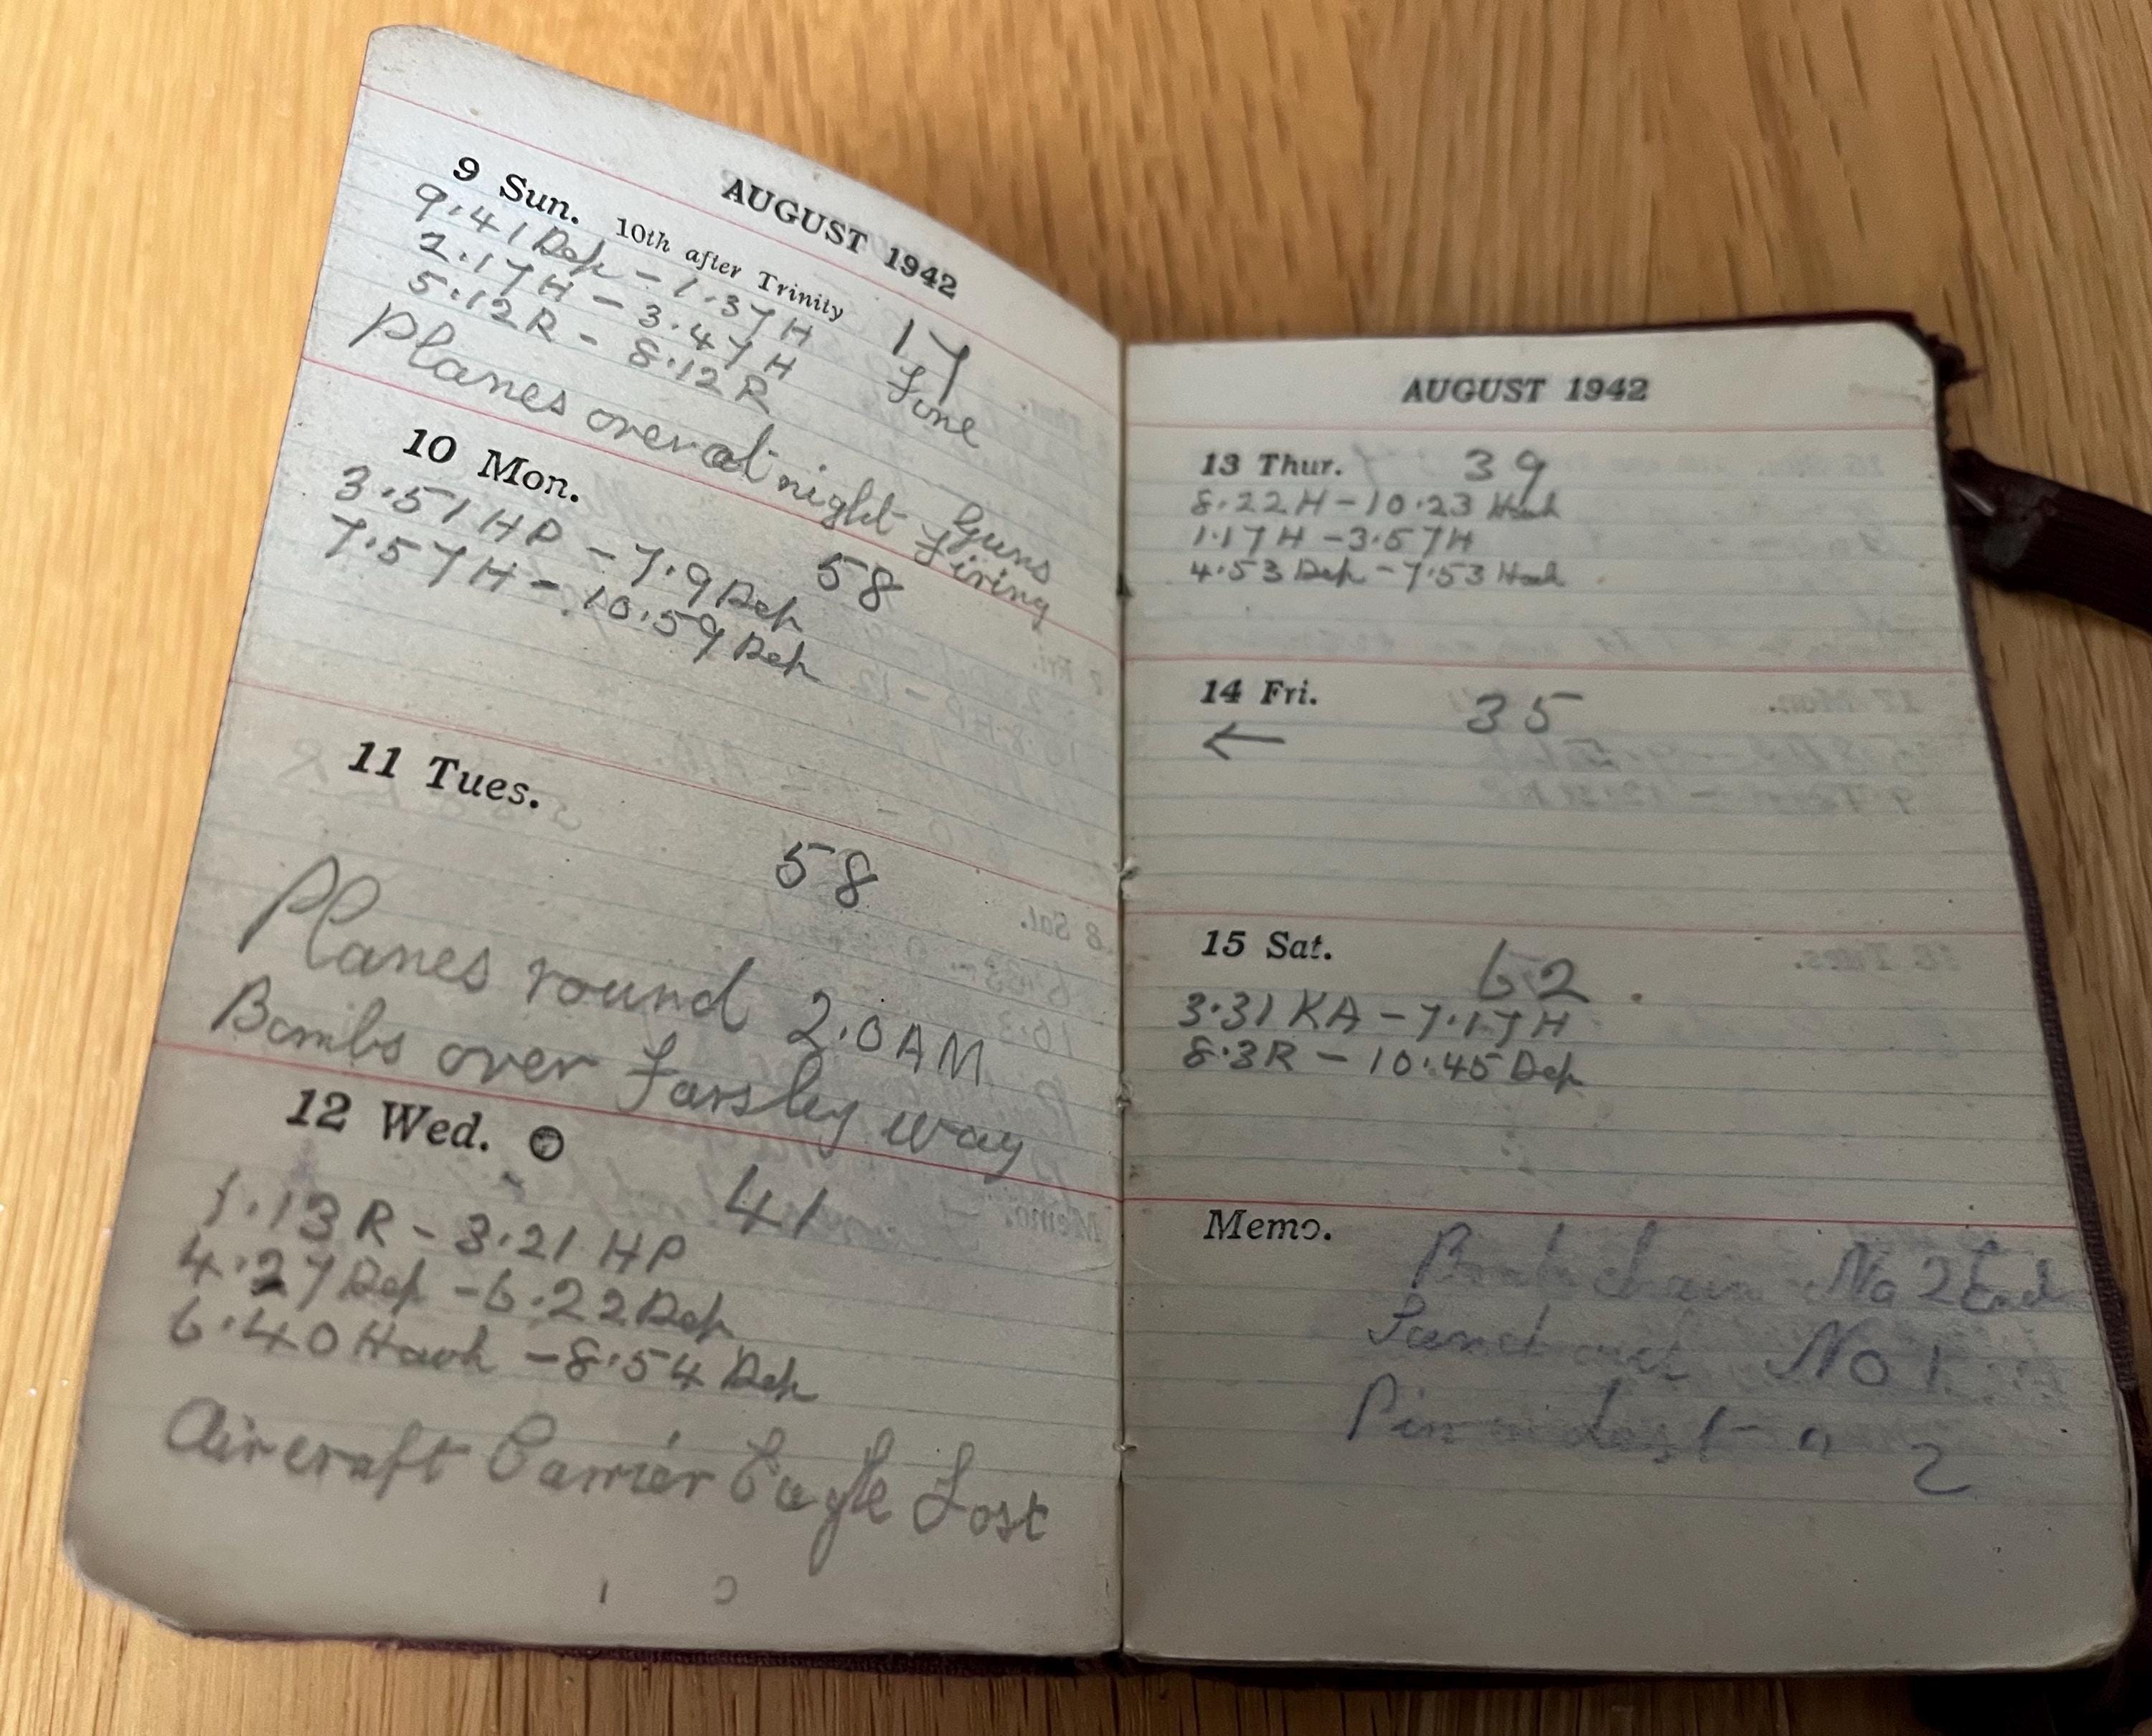 AUGUST 1942
9 Sun. 10th after Trinity 17
9.41 Dep - 1.37 H Fine
2.17 H - 3.47 H
5.12 R - 8.12 R
Planes over at night Guns
Firing
10 Mon. 58
3.51 HP - 7.9 Dep
7.57 H - 10.59 Dep
11 Tues.
58
Planes round 2.0 AM
Bombs over Farsley way
12 Wed.
41
1.13 R - 3.21 HP
4.27 Dep - 6.22 Dep
6.40 Hawk - 8.54 Dep
Aircraft Carrier Eagle Lost
AUGUST 1942
13 Thur. 39
8.22 H - 10.23 Hawk
1.17 H - 3.57 H
4.53 Dep - 7.53 Hawk
14 Fri. 35
←
15 Sat. 62
3.31 KA - 7.17 H
8.3 R - 10.45 Dep
Memo.
chain No 2 End
Sand No 1
Pin Lost " 2